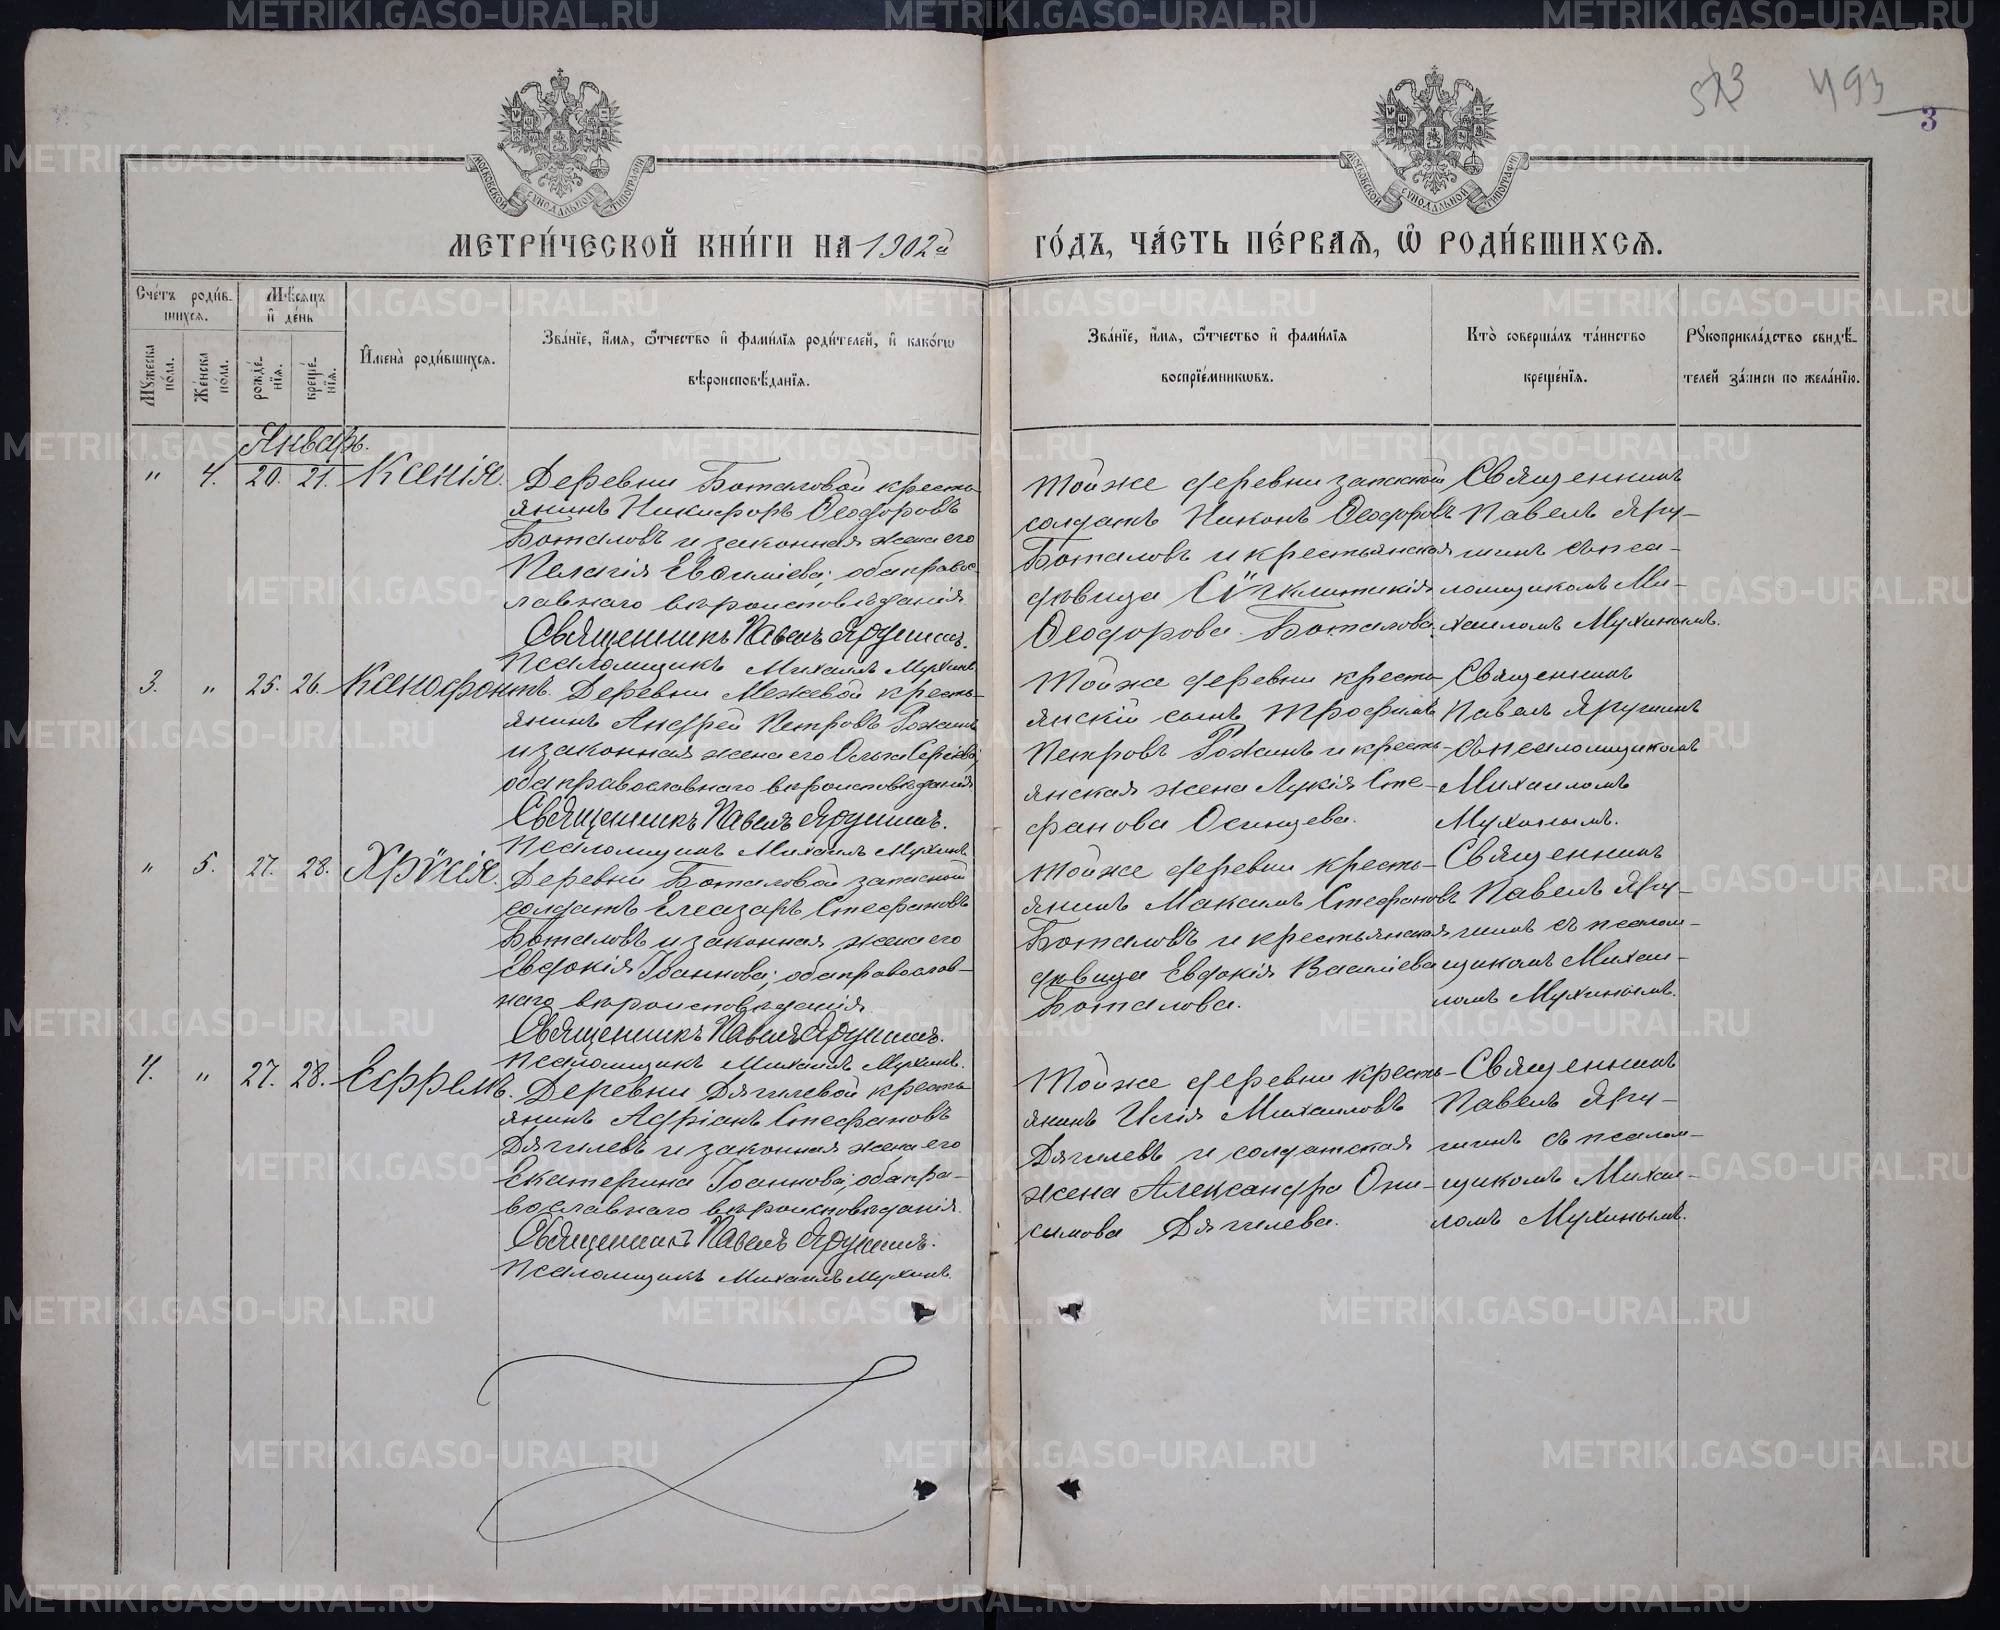 573 493
3
МОСКОВСКОЙ СУНОДАЛЬНОЙ ТИПОГРАФІИ
МОСКОВСКОЙ СУНОДАЛЬНОЙ ТИПОГРАФІИ
МЕТРИ́ЧЕСКОЙ КНИ́ГИ НА 1902й
ГО́ДЪ, ЧА́СТЬ ПЕ́РВАѦ, Ѡ РОДИ́ВШИХСѦ.
Сче́тъ роди́в-
шихсѧ.
Мꙋжеска по́ла.
Же́нска по́ла.
Мѣ́сѧцъ и де́нь
рожде́-нїѧ.
креще́-нїѧ.
И҆мена̀ роди́вшихсѧ.
Зва́нїе, и҆́мѧ, ѻ҆́тчество и҆ фами́лїѧ роди́телей, и҆ како́гѡ
вѣроисповѣ́данїѧ.
Зва́нїе, и҆́мѧ, ѻ҆́тчество и҆ фами́лїѧ
воспрїе́мникѡвъ.
Кто̀ соверша́лъ та́инство
креще́нїѧ.
Рꙋкоприкла́дство свидѣ́-
телей за́писи по жела́нїю.
Январь.
" 4. 20. 21. Ксенія.
Деревни Боталовой кресть-
янинъ Никифоръ Ѳеодоровъ
Боталовъ и законная жена его
Пелагія Евѳиміева; оба правос-
лавнаго вѣроисповѣданія
Священникъ Павелъ Ярушинъ.
Псаломщикъ Михаилъ Мухинъ
Тойже деревни запасной
солдатъ Никонъ Ѳеодоровъ
Боталовъ и крестьянская
дѣвица Сѵнклитикія
Ѳеодорова Боталова.
Священникъ
Павелъ Яру-
шинъ съ пса-
ломщикомъ Ми-
хаиломъ Мухинымъ.
3. " 25. 26. Ксенофонтъ.
Деревни Межевой кресть-
янинъ Андрей Петровъ Рожинъ
и законная жена его Ольга Сергіева;
оба православнаго вѣроисповѣданія
Священникъ Павелъ Ярушинъ.
Псаломщикъ Михаилъ Мухинъ
Тойже деревни кресть-
янскій сынъ Трофимъ
Петровъ Рожинъ и кресть-
янская жена Лукія Сте-
фанова Осинцева.
Священникъ
Павелъ Ярушинъ
съ псаломщикомъ
Михаиломъ
Мухинымъ.
" 5. 27. 28. Хрѵсія.
Деревни Боталовой запасной
солдатъ Елеазаръ Стефановъ
Боталовъ и законная жена его
Евдокія Іоаннова; оба православ-
наго вѣроисповѣданія
Священникъ Павелъ Ярушинъ.
Псаломщикъ Михаилъ Мухинъ.
Тойже деревни кресть-
янинъ Максимъ Стефановъ
Боталовъ и крестьянская
дѣвица Евдокія Васіліева
Боталова.
Священникъ
Павелъ Яру-
шинъ съ псалом-
щикомъ Михаи-
ломъ Мухинымъ.
4. " 27. 28. Ефремъ.
Деревни Дягилевой кресть-
янинъ Адріанъ Стефановъ
Дягилевъ и законная жена его
Екатерина Іоаннова; оба пра-
вославнаго вѣроисповѣданія.
Священникъ Павелъ Ярушинъ.
Псаломщикъ Михаилъ Мухинъ.
Тойже деревни кресть-
янинъ Илія Михаиловъ
Дягилевъ и солдатская
жена Александра Они-
симова Дягилева.
Священникъ
Павелъ Яру-
шинъ съ псалом-
щикомъ Михаи-
ломъ Мухинымъ.
METRIKI.GASO-URAL.RU